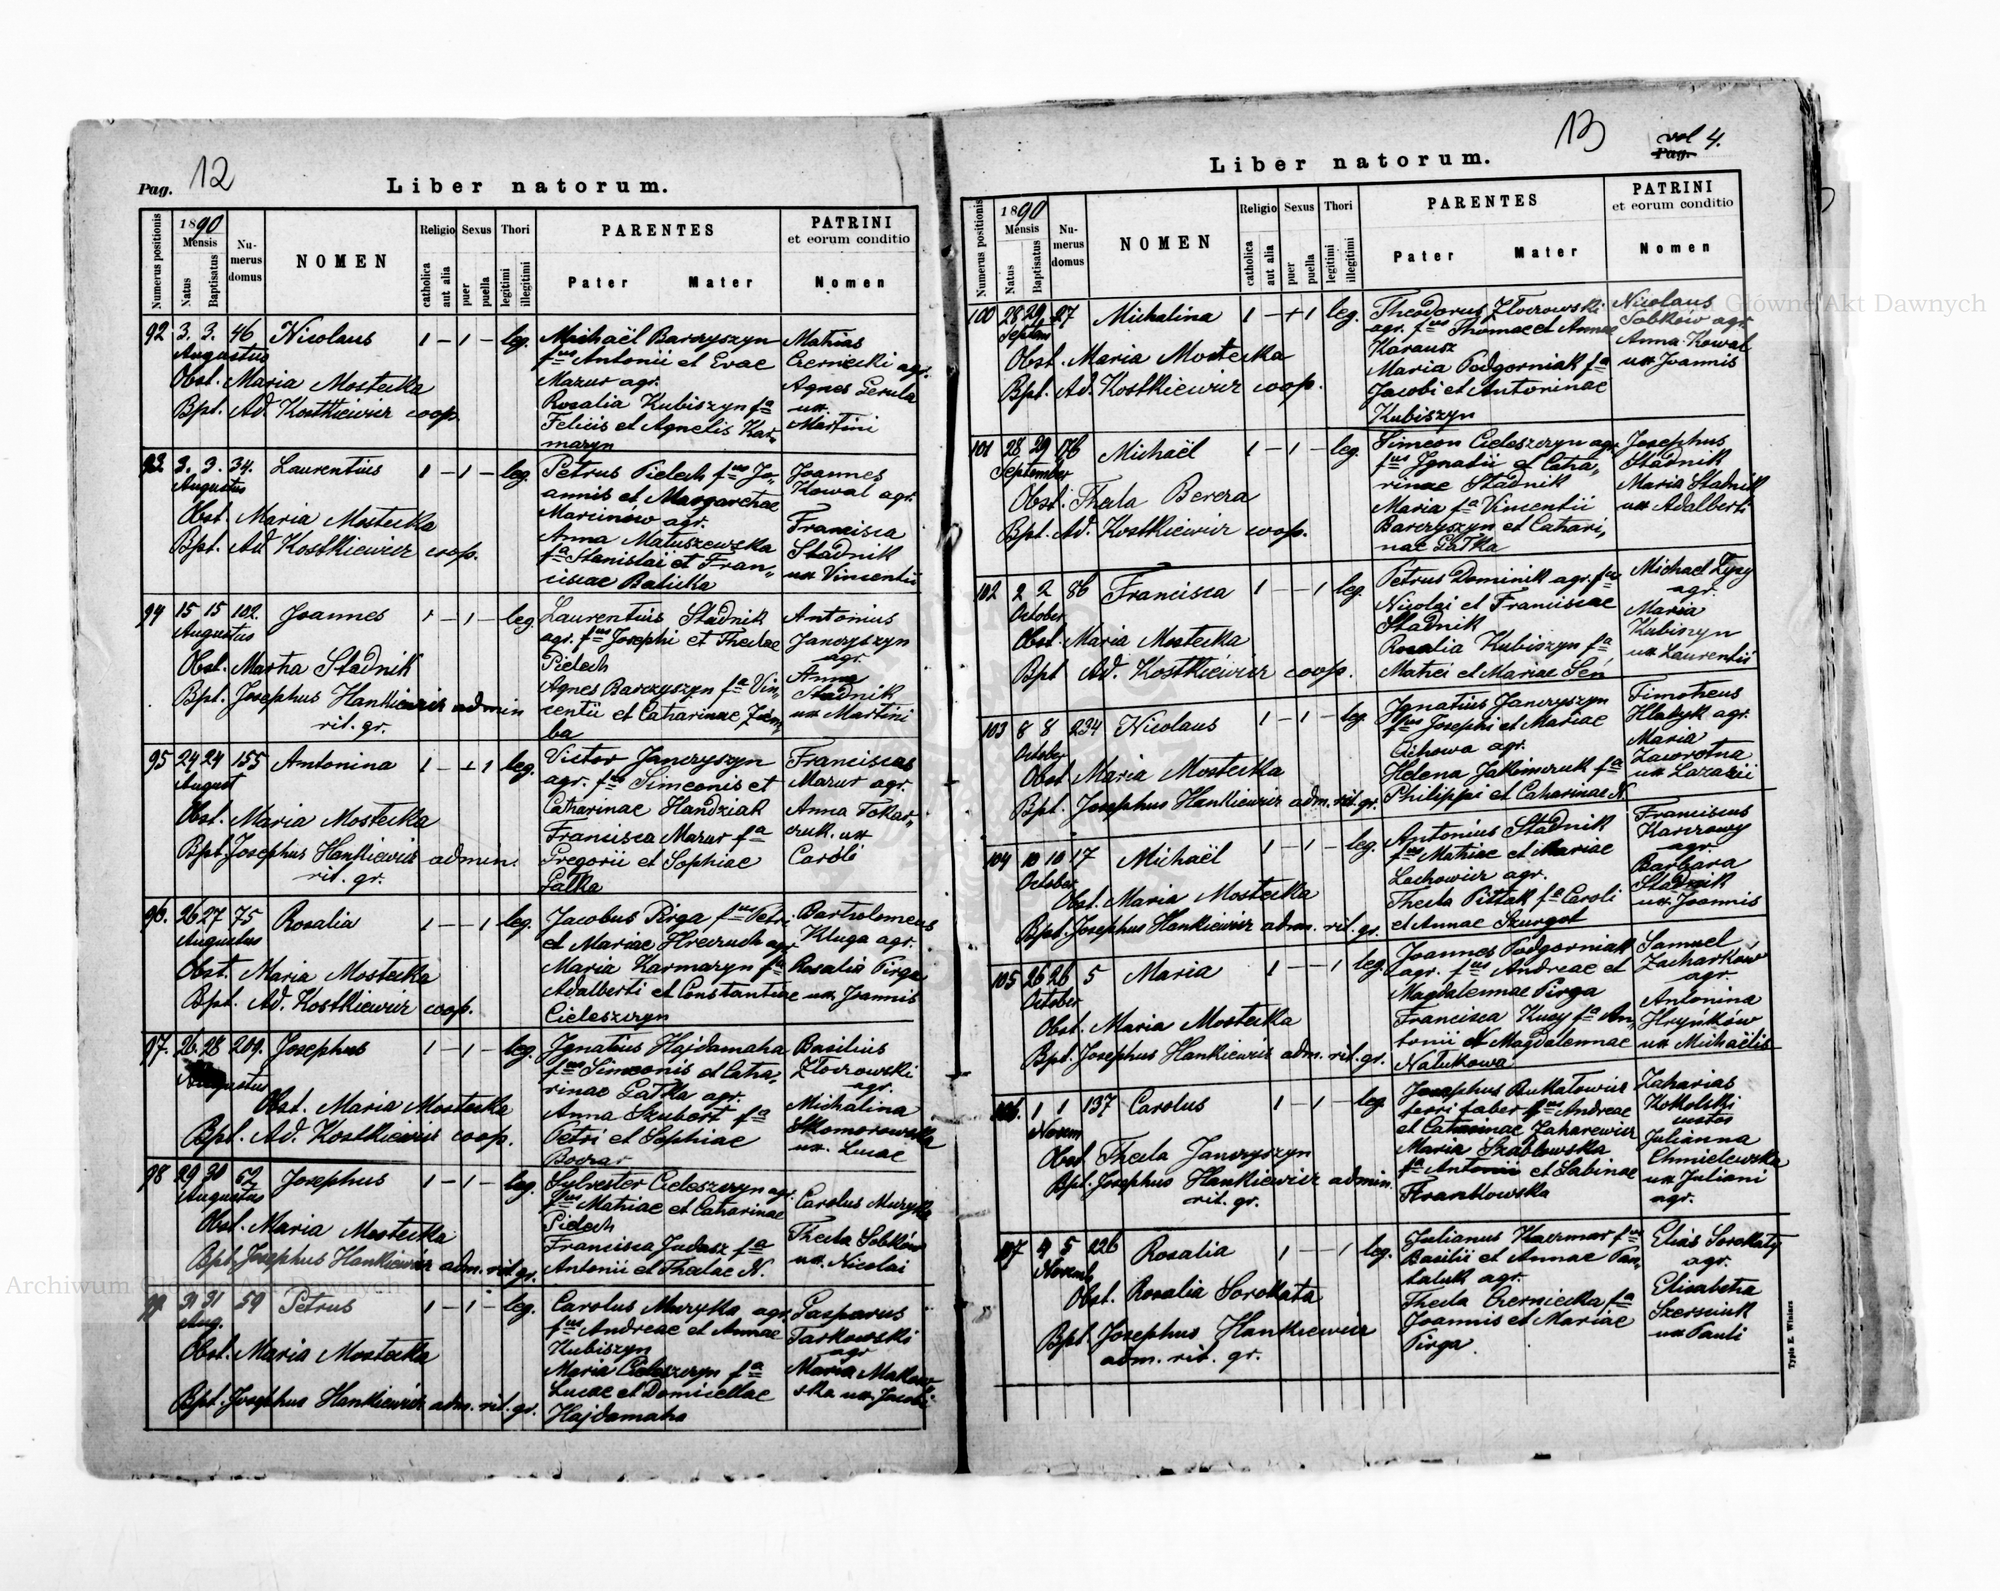 Pag. 12
Liber natorum.
Numerus positionis
1890
Mensis
Natus
Baptisatus
Nu-
merus
domus
NOMEN
Religio
catholica
aut alia
Sexus
puer
puella
Thori
legitimi
illegitimi
PARENTES
Pater Mater
PATRINI
et eorum conditio
Nomen
92 3. 3. 46 Nicolaus 1 – 1 – leg. Michaël Barczyszyn Mathias
Augustus fus Antonii et Evae Czernecki agr.
Obst. Maria Mostecka Mazur agr. Agnes Gerula
Bpt. Ad. Kostkiewicz coop. Rosalia Kubiszyn fa ux.
Felicis et Agnetis Kar- Martini
mazyn
93. 3. 3. 34. Laurentius 1 – 1 – leg. Petrus Pielech fus Jo- Joannes
Augustus annis et Margarethae Kowal agr.
Obst. Maria Mostecka Marcinów agr. Francisca
Bpt. Ad Kostkiewicz coop. Anna Matuszewska Stadnik
fa Stanislai et Fran- ux Vincentii
ciscae Balicka
94 15 15 102. Joannes 1 – 1 – leg. Laurentius Stadnik Antonius
Augustus agr. fus Josephi et Theclae Janczyszyn
Obst. Martha Stadnik Pielech agr.
Bpt. Josephus Hankiewicz admin Agnes Barczyszyn fa Vin- Anna
rit. gr. centii et Catharinae Ziem- Stadnik
ba ux Martini
95 24 24 155 Antonina 1 – – 1 leg. Victor Janczyszyn Franciscus
August agr. fus Simeonis et Mazur agr.
Obst. Maria Mostecka Catharinae Handziak Anna Tokar-
Bpt. Josephus Hankiewicz admin. Francisca Mazur fa czuk. ux
rit. gr. Gregorii et Sophiae Caroli
Gałka
96. 26 27 75 Rosalia 1 – – 1 leg. Jacobus Pirga fus Petri Bartholomeus
Augustus et Mariae Hreczuch agr. Kluga agr.
Obst. Maria Mostecka Maria Karmazyn fa Rosalia Pirga
Bpt. Ad. Kostkiewicz coop. Adalberti et Constantiae ux Joannis
Cieleszczyn
97. 26. 28 209. Josephus 1 – 1 – leg. Ignatius Hajdamaha Basilius
Augustus fus Simeonis et Catha- Złoczowski
Obst. Maria Mostecka rinae Gałka agr. agr.
Bpt. Ad. Kostkiewicz coop. Anna Szubert fa Michalina
Petri et Sophiae Skomorowska
Boczar ux. Lucae
98 29 30 62 Josephus 1 – 1 – leg. Sylvester Cieleszczyn agr.
Augustus fus Mathiae et Catharinae Carolus Muzyka
Obst. Maria Mostecka Pielech Thecla Sobków
Bpt. Josephus Hankiewicz adm. rit. gr. Francisca Judasz fa ux. Nicolai
Antonii et Theclae N.
99. 31 31 59 Petrus 1 – 1 – leg. Carolus Muzyka agr. Gasparus
Aug. fus Andreae et Annae Tarkowski
Obst. Maria Mostecka Kubiszyn agr
Bpt. Josephus Hankiewicz adm. rit. gr. Maria Cieleszczyn fa Maria Makow-
Lucae et Domicellae ska ux. Jacobi
Hajdamaha
13 vol 4.
Pag.
Liber natorum.
Numerus positionis
1890
Mensis
Natus
Baptisatus
Nu-
merus
domus
NOMEN
Religio
catholica
aut alia
Sexus
puer
puella
Thori
legitimi
illegitimi
PARENTES
Pater Mater
PATRINI
et eorum conditio
Nomen
100 28 29 27 Michalina 1 – – 1 leg. Theodorus Złoczowski Nicolaus
Septem agr. fus Thomae et Annae Sobków agr.
Obst. Maria Mostecka Karausz Anna Kowal
Bpt. Ad. Kostkiewicz coop. Maria Podgorniak fa ux Joannis
Jacobi et Antoninae
Kubiszyn
101 28 29 176 Michaël 1 – 1 – leg. Simeon Cieleszczyn agr. Josephus
September fus Ignatii et Catha- Stadnik
Obst. Thecla Bereza rinae Stadnik Maria Stadnik
Bpt. Ad. Kostkiewicz coop. Maria fa Vincentii ux Adalberti
Barczyszyn et Cathari-
nae Gałka
102 2 2 86 Francisca 1 – – 1 leg. Petrus Dominik agr. fus Michael Łysy
October Nicolai et Franciscae agr.
Obst. Maria Mostecka Stadnik Maria
Bpt Ad. Kostkiewicz coop. Rosalia Kubiszyn fa Kubiszyn
Mathei et Mariae Seń ux Laurentii
103 8 8 234 Nicolaus 1 – 1 – leg. Ignatius Janczyszyn Timotheus
October fus Josephi et Mariae Hladyk agr.
Obst Maria Mostecka Cichowa agr. Maria
Bpt. Josephus Hankiewicz adm. rit. gr. Helena Jakimczuk fa Zawrotna
Philippi et Catharinae N. ux Lazarii
104 10 10 17 Michaël 1 – 1 – leg. Antonius Stadnik Franciscus
October fus Mathiae et Mariae Karczowy
Obst. Maria Mostecka Lachowicz agr. agr.
Bpt. Josephus Hankiewicz adm. rit. gr. Thecla Pittak fa Caroli Barbara
et Annae Szurgot Stadnik
ux Joannis
105 26 26 5 Maria 1 – – 1 leg. Joannes Podgorniak Samuel
October agr. fus Andreae et Zacharków
Obst. Maria Mostecka Magdalennae Pirga agr.
Bpt. Josephus Hankiewicz adm. rit. gr. Francisca Kucy fa An- Antonina
tonii et Magdalennae Hryńków
Nalukowa ux Michaëlis
106. 1 1 137 Carolus 1 – 1 – leg. Josephus Bukatowicz Zaharias
Novem ferri faber fus Andreae Kokolski
Obst Thecla Janczyszyn et Catharinae Zaharewicz custos
Bpt. Josephus Hankiewicz admin. Maria Szablowska Julianna
rit. gr. fa Antonii et Sabinae Chmielewska
Frankowska ux Juliani
agr.
107 4 5 226 Rosalia 1 – – 1 leg. Julianus Kaczmar fus Elias Sorokaty
Novemb Basilii et Annae Pan- agr.
Obst. Rosalia Sorokata taluk agr. Elisabetha
Bpt. Josephus Hankiewicz Thecla Czerniecka fa Szerszink
adm. rit. gr. Joannis et Mariae ux Pauli
Pirga.
Typis E. Winiarz
Główne Akt Dawnych
Archiwum Główne Akt Dawnych